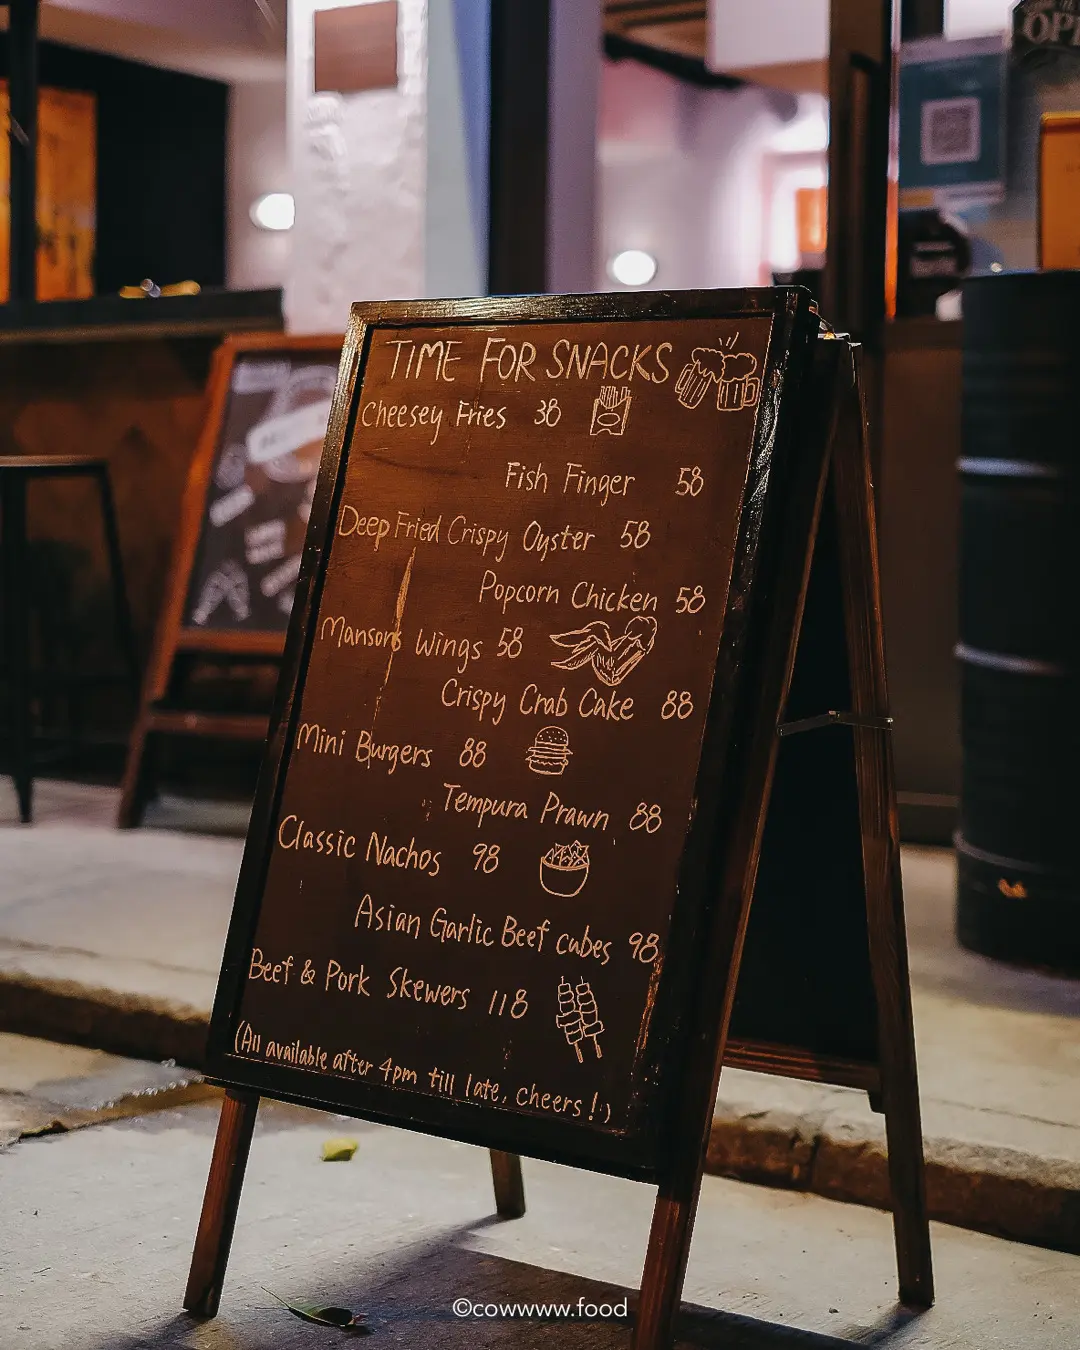 TIME FOR SNACKS
Cheesey Fries 38
Fish Finger 58
Deep Fried Crispy Oyster 58
Popcorn Chicken 58
Manson's Wings 58
Crispy Crab Cake 88
Mini Burgers 88
Tempura Prawn 88
Classic Nachos 98
Asian Garlic Beef cubes 98
Beef & Pork Skewers 118
(All available after 4pm till late, cheers!)
©cowwww.food